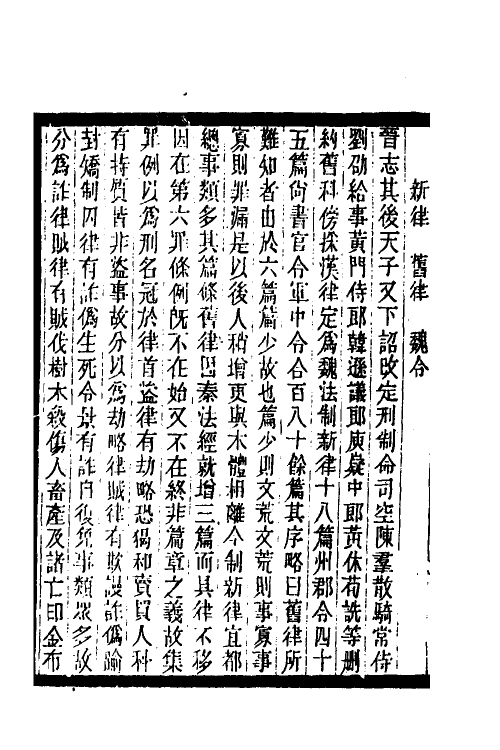 新律　舊律　魏令
晉志其後天子又下詔改定刑制命司空陳羣散騎常侍
劉邵給事黃門侍郎韓遜議郎庾嶷中郎黃休荀詵等刪
約舊科傍採漢律定爲魏法制新律十八篇州郡令四十
五篇尚書官令軍中令合百八十餘篇其序略曰舊律所
難知者由於六篇篇少故也篇少則文荒文荒則事寡事
寡則罪漏是以後人稍增更與本體相離今制新律宜都
總事類多其篇條舊律因秦法經就增三篇而具律不移
因在第六罪條例旣不在始又不在終非篇章之義故集
罪例以爲刑名冠於律首盜律有劫略恐猲和賣買人科
有持質皆非盜事故分以爲劫略律賊律有欺謾詐僞踰
封矯制囚律有詐僞生死令景有詐自復免事類眾多故
分爲詐律賊律有賊伐樹木殺傷人畜產及諸亡印金布